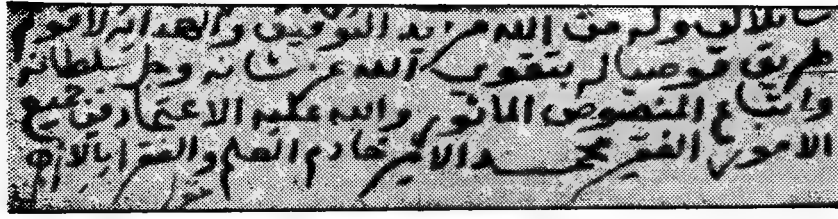 سائلا لي وله من الله مزيد التوفيق والهداية لاقوم
طريق فوصيا له بتقوى الله عز شانه وجل سلطانه
واتباع المنصوص الماثور والله عليه الاعتماد في جميع
الامور الفقير محمد الامير خادم العلم والفقرا بالازهر